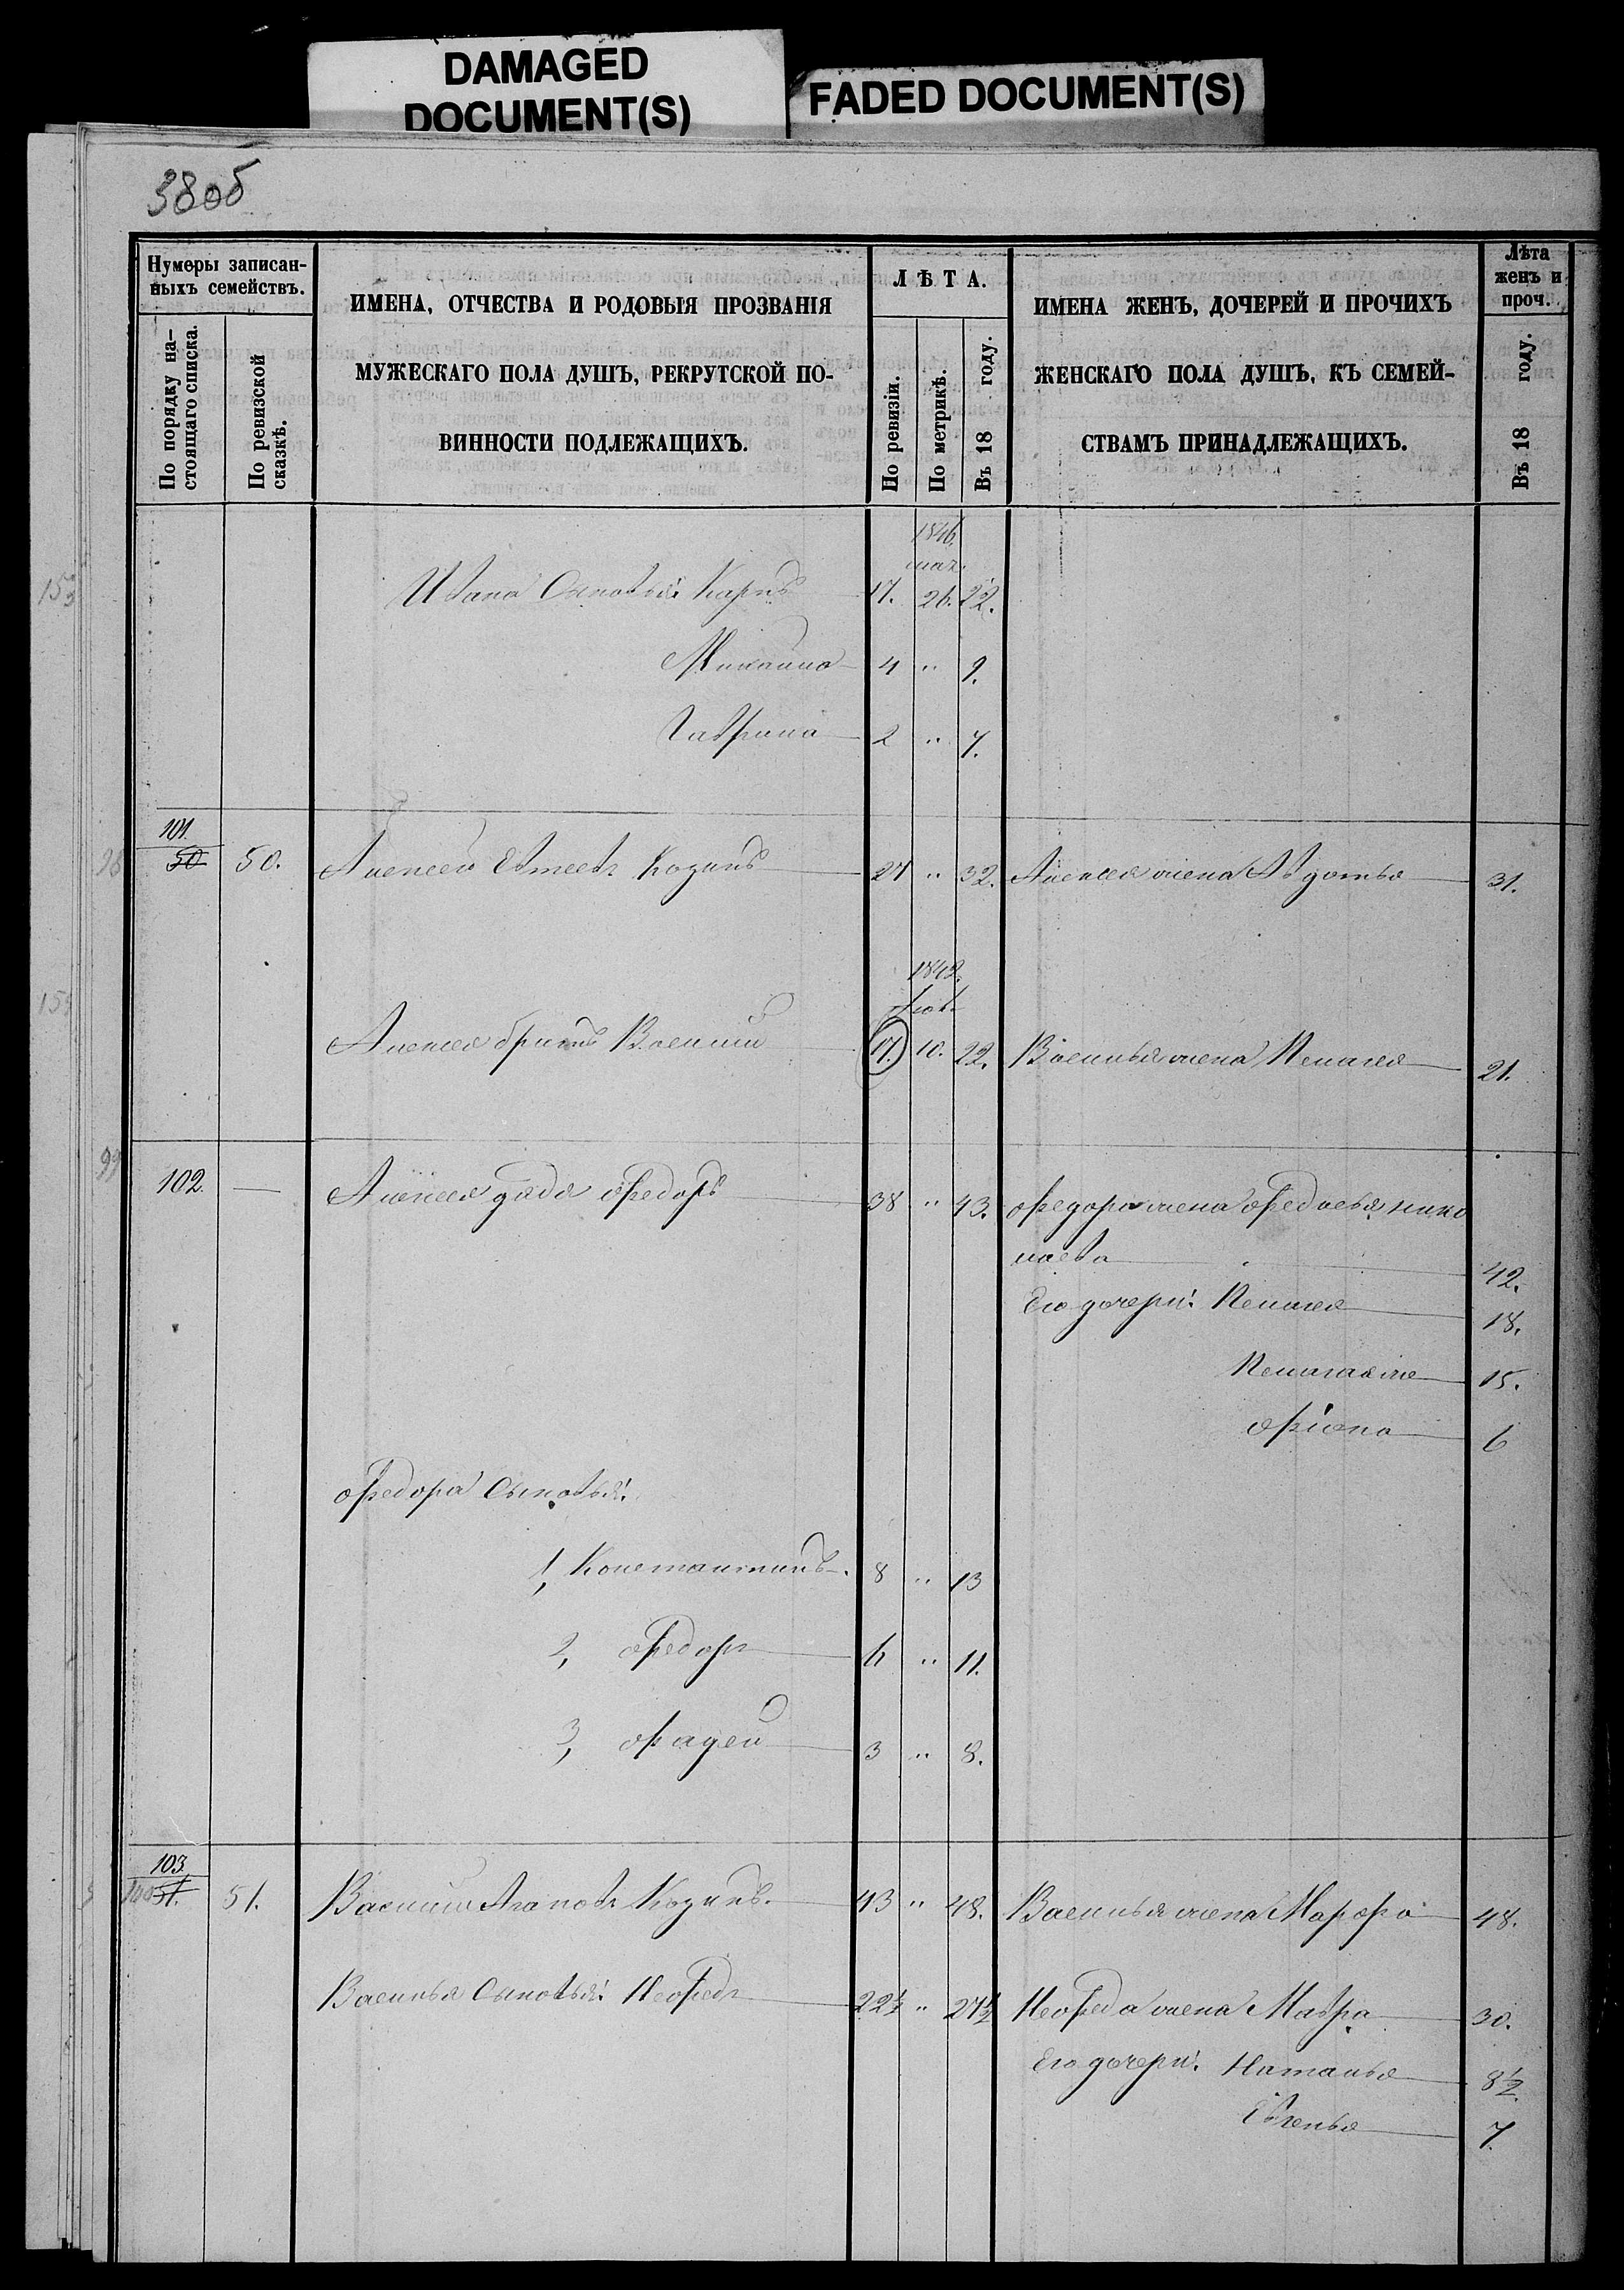 DAMAGED
DOCUMENT(S)
FADED DOCUMENT(S)
38об
Нумеры записан-
ныхъ семействъ.
По порядку на-
стоящаго списка.
По ревизской
сказкѣ.
ИМЕНА, ОТЧЕСТВА И РОДОВЫЯ ПРОЗВАНІЯ
МУЖЕСКАГО ПОЛА ДУШЪ, РЕКРУТСКОЙ ПО-
ВИННОСТИ ПОДЛЕЖАЩИХЪ.
ЛѢТА.
По ревизіи.
По метрикѣ.
Въ 18 году.
ИМЕНА ЖЕНЪ, ДОЧЕРЕЙ И ПРОЧИХЪ
ЖЕНСКАГО ПОЛА ДУШЪ, КЪ СЕМЕЙ-
СТВАМЪ ПРИНАДЛЕЖАЩИХЪ.
Лѣта
женъ и
проч.
Въ 18 году.
1846.
Ивана Сыновья: Карпъ 17. 26. 22.
Михаило 4 " 9.
Гаврило 2 " 7.
101.
50 50. Алексей Евтеевъ Козинъ 27 " 32. Алексея жена Авдотья 31.
1842.
Алексея братъ Василий 17. 10. 22. Василья жена Пелагея 21.
102. — Алексея дядя Федоръ 38 " 43. Федора жена Федосья Нико
лаева 42.
Его дочери: Пелагея 18.
Пелагея же 15.
6
Федора Сыновья:
1, Константинъ. 8 " 13
2, Федоръ 6 " 11.
3, Фадей 3 " 8.
103
51. 51. Василий Агаповъ Козинъ. 43 " 48. Василья жена Марфа 48.
Василья Сыновья: Нефедъ 22½ " 27½ Нефеда жена Мавра 30.
Его дочери: Наталья 8½
Евгенья 7.